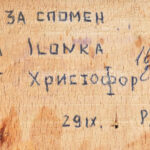 ЗА СПОМЕН
ILONKA
Христофор
29 IX.